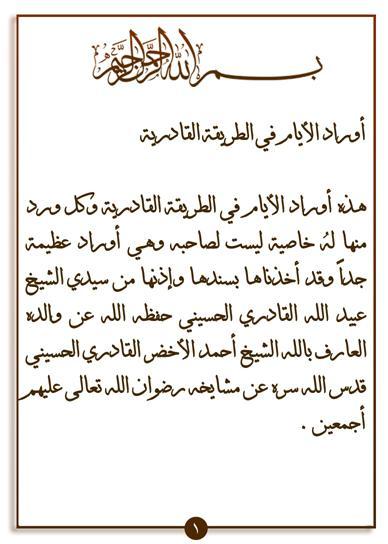 بسم الله الرحمن الرحيم
أوراد الأيام في الطريقة القادرية
هذه أوراد الأيام في الطريقة القادرية وكل ورد
منها لهُ خاصية ليست لصاحبه وهي أوراد عظيمة
جداً وقد أخذناها بسندها وإذنها من سيدي الشيخ
عبيد الله القادري الحسيني حفظه الله عن والده
العارف بالله الشيخ أحمد الأخضر القادري الحسيني
قدس الله سره عن مشايخه رضوان الله تعالى عليهم
أجمعين .
١